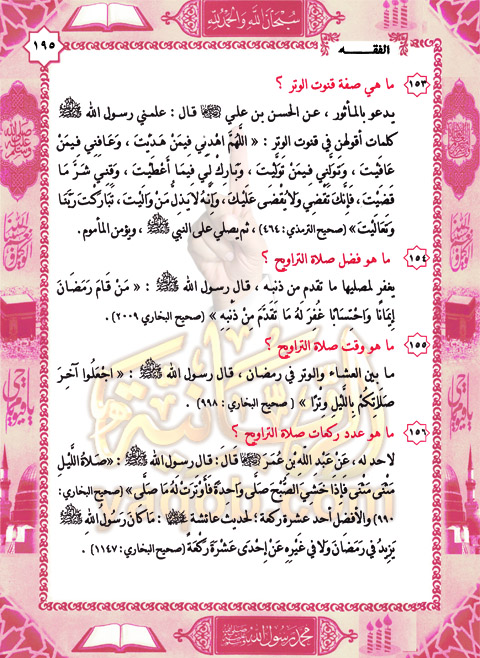 سُبْحَانَ اللَّهِ وَالْحَمْدُ لِلَّهِ
الفقـــه
١٩٥
١٥٣ ما هي صفة قنوت الوتر ؟
يدعو بالمأثور ، عن الحسن بن علي ﵁ قال : علمني رسول الله ﷺ
كلمات أقولهن في قنوت الوتر : « اللَّهُمَّ اهْدِنِي فِيمَنْ هَدَيْتَ ، وَعَافِنِي فِيمَنْ
عَافَيْتَ ، وَتَوَلَّنِي فِيمَنْ تَوَلَّيْتَ ، وَبَارِكْ لِي فِيمَا أَعْطَيْتَ ، وَقِنِي شَرَّ مَا
قَضَيْتَ ، فَإِنَّكَ تَقْضِي وَلَا يُقْضَى عَلَيْكَ ، وَإِنَّهُ لَا يَذِلُّ مَنْ وَالَيْتَ ، تَبَارَكْتَ رَبَّنَا
وَتَعَالَيْتَ» (صحيح الترمذي: ٤٦٤) ، ثم يصلي على النبي ﷺ ، ويؤمن المأموم .
١٥٤ ما هو فضل صلاة التراويح ؟
يغفر لمصليها ما تقدم من ذنبه ، قال رسول الله ﷺ : « مَنْ قَامَ رَمَضَانَ
إِيمَانًا وَاحْتِسَابًا غُفِرَ لَهُ مَا تَقَدَّمَ مِنْ ذَنْبِهِ » (صحيح البخاري ٢٠٠٩)
١٥٥ ما هو وقت صلاة التراويح ؟
ما بين العشاء والوتر في رمضان ، قال رسول الله ﷺ : « اجْعَلُوا آخِرَ
صَلَاتِكُمْ بِاللَّيْلِ وِتْرًا » ( صحيح البخاري : ٩٩٨) .
١٥٦ ما هو عدد ركعات صلاة التراويح ؟
لا حد له ، عَنْ عَبْدِ اللَّهِ بْنِ عُمَرَ ﵄ قَالَ : قال رسول الله ﷺ : «صَلَاةُ اللَّيْلِ
مَثْنَى مَثْنَى فَإِذَا خَشِيَ الصُّبْحَ صَلَّى وَاحِدَةً فَأَوْتَرَتْ لَهُ مَا صَلَّى » (صحيح البخاري:
٩٩٠) والأفضل أحد عشرة ركعة ؛ لحديث عائشة ﵂ : مَا كَانَ رَسُولُ اللَّهِ ﷺ
يَزِيدُ فِي رَمَضَانَ وَلَا فِي غَيْرِهِ عَنْ إِحْدَى عَشْرَةَ رَكْعَةً (صحيح البخاري : ١١٤٧) .
محمد رسول الله ﷺ